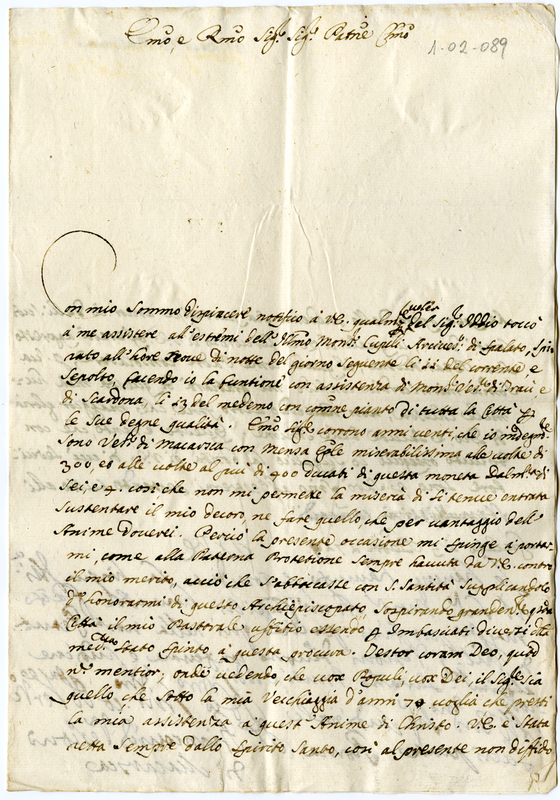 Emo, e Rmo Sig.r Sig.r Patne Cmo
1-02-089
Con mio sommo dispiacere notifico à VE. qualmte voler del Sig.r Iddio toccò
à me assistere all'estremi dell' Illmo Mons.r Cupilli Arcives.o di Spalato, Spi-
rato all'hore nove di notte del giorno seguente li 11 del corrente e
sepolto, facendo io la funtione con assistenza di Mons.r Ves.o di Traù e
di Scardona, li 13 del medemo con comne pianto di tutta la Città p
le sue degne qualità. Emo Sig.e corrono anni venti, che io indegnte
sono Ves.o di Macarsca con Mensa Eple miserabilissima alle volte di
300, et alle volte al più di 400 ducati di questa moneta Dalmta di
sei, e 4. così che non mi permette la miseria di sì tenue entrata
sustentare il mio decoro, ne fare quello, che per vantaggio dell'
Anime doverei. Perciò la presente occasione mi spinge à portar-
mi, come alla Paterna Protetione sempre havuta da VE. contro
il mio merito, acciò che s'abboccasse con S. Santità supplicandolo
d'honorarmi di questo Archiepiscopato, sospirando grandemte
Città il mio Pastorale uffitio essendo p Imbasciati diversi
med.ma stato spinto à questa procura. Testor coram Deo, quod
nò mentior, onde vedendo, che vox Populi, vox Dei, il Sig.e sia
quello che sotto la mia Vecchiaggia d'anni 70 voglia che presti
la mia assistenza à quest' Anime di Christo. VE. è stata
retta sempre dallo Spirito Santo, così al presente non diffido